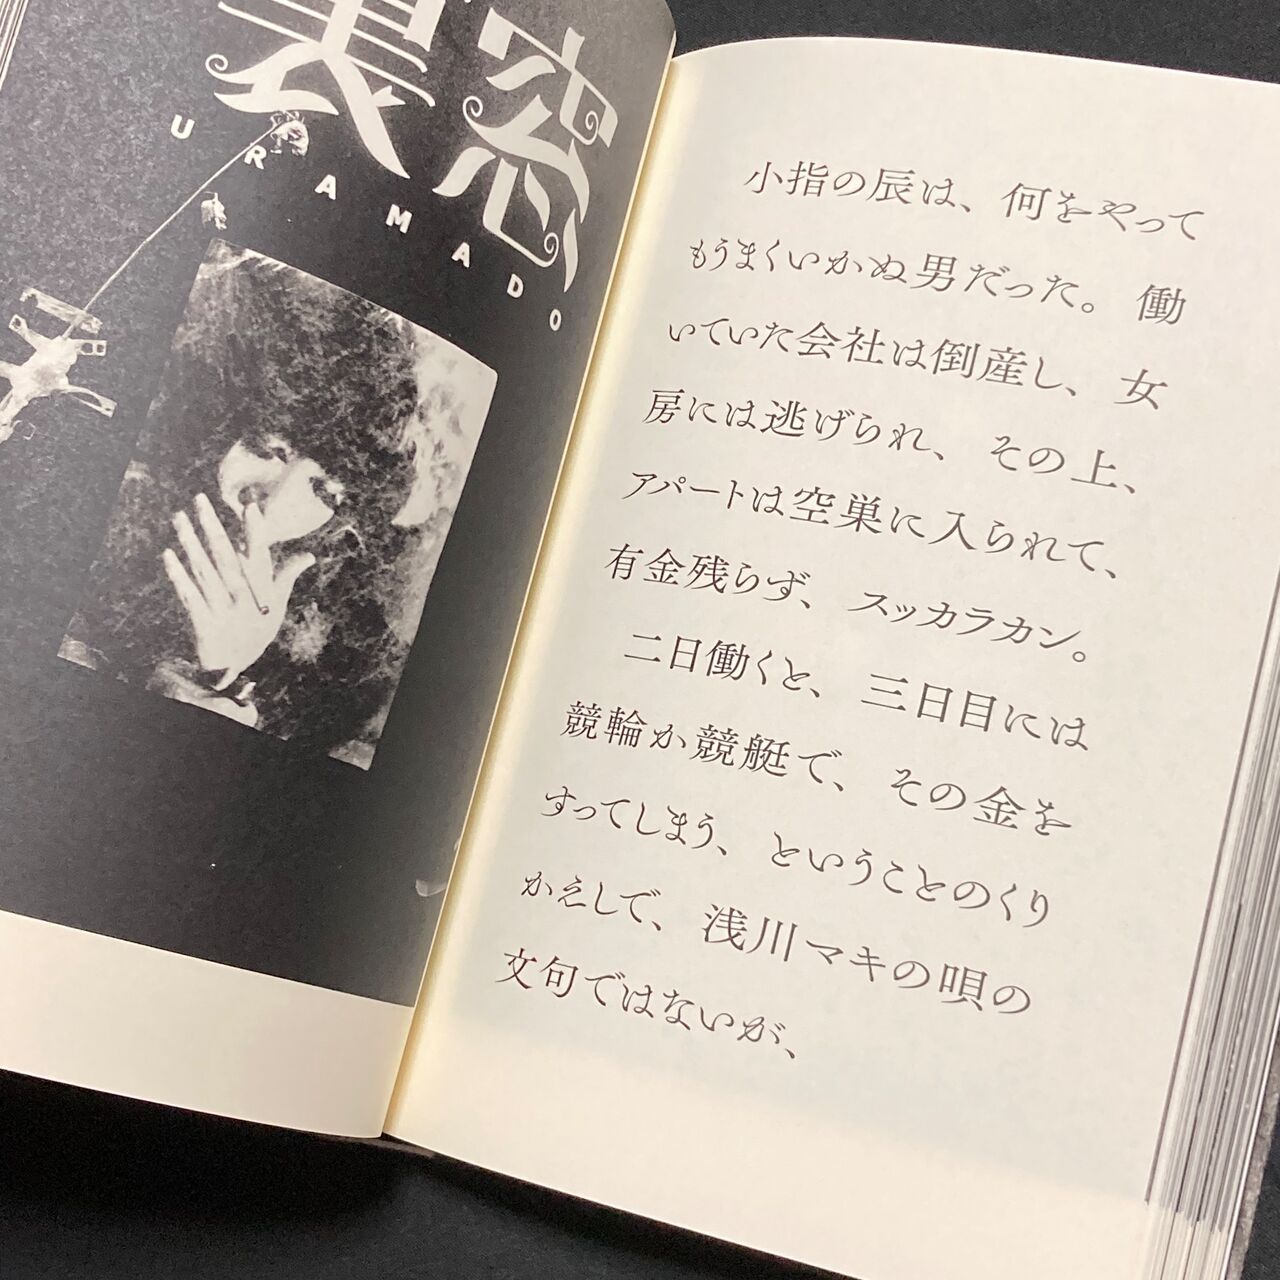 裏窓
URAMADO
小指の辰は、何をやって
もうまくいかぬ男だった。働
いていた会社は倒産し、女
房には逃げられ、その上、
アパートは空巣に入られて、
有金残らず、スッカラカン。
二日働くと、三日目には
競輪か競艇で、その金を
すってしまう、ということのくり
かえしで、浅川マキの唄の
文句ではないが、